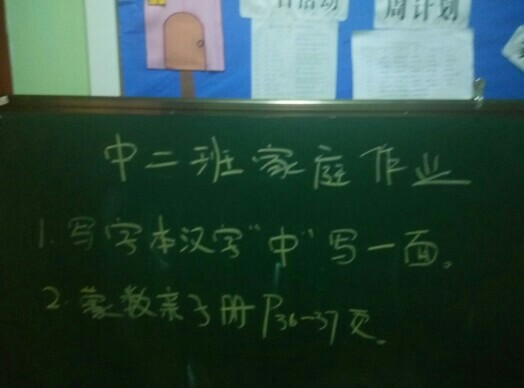 日活动
周计划
中二班家庭作业
1. 写字本汉字“中”写一面。
2. 蒙数亲子册P36-37页.